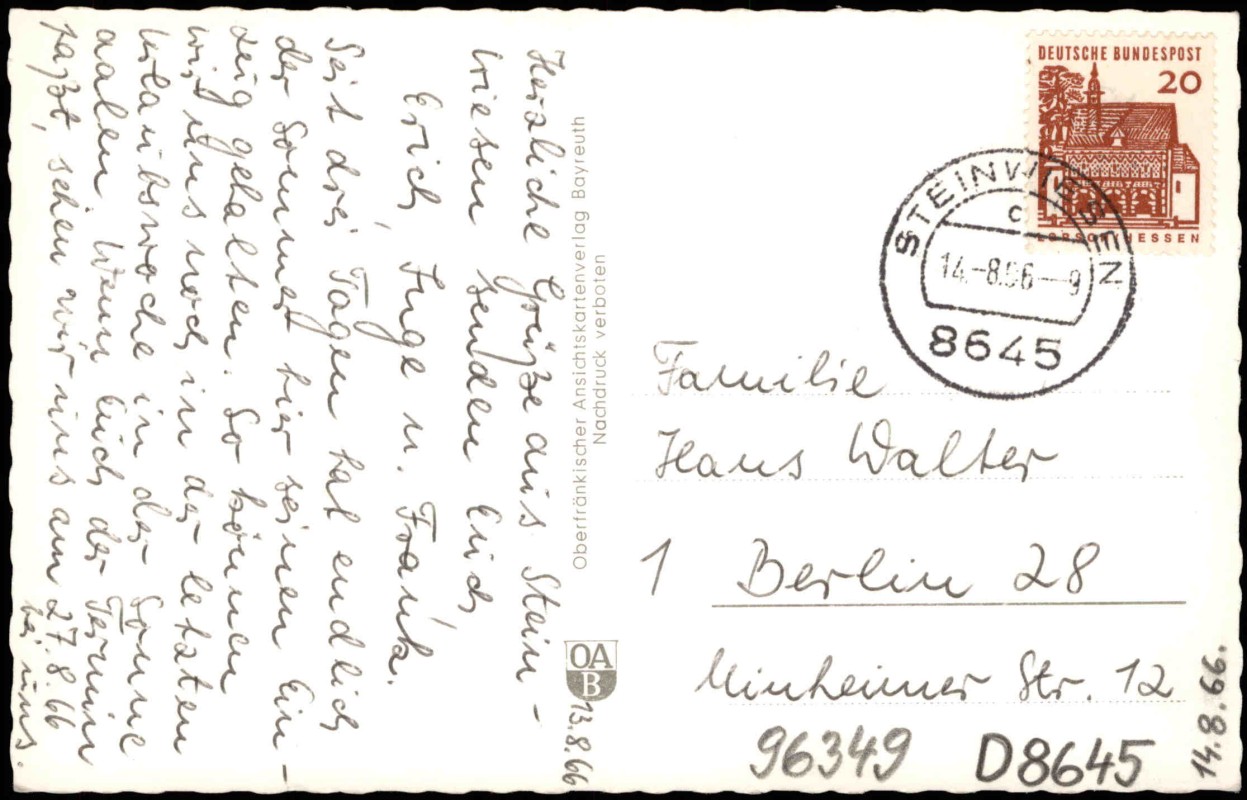 Herzliche Grüße aus Stein-
wiesen senden Euch
Erich, Inge u. Frank.
Seit drei Tagen hat endlich
der Sommer hier seinen Ein-
zug gehalten. So können
wir uns noch in der letzten
Urlaubswoche in der Sonne
aalen. Wenn Euch der Termin
paßt, sehen wir uns am 27.8.66
bei uns.
13.8.66
Oberfränkischer Ansichtskartenverlag Bayreuth
Nachdruck verboten
OA
B
DEUTSCHE BUNDESPOST
20
LORSCH HESSEN
STEINWIESEN
c
14.-8.66-9
8645
Familie
Hans Walter
1 Berlin 28
Minheimer Str. 12
96349 D8645
14.8.66.